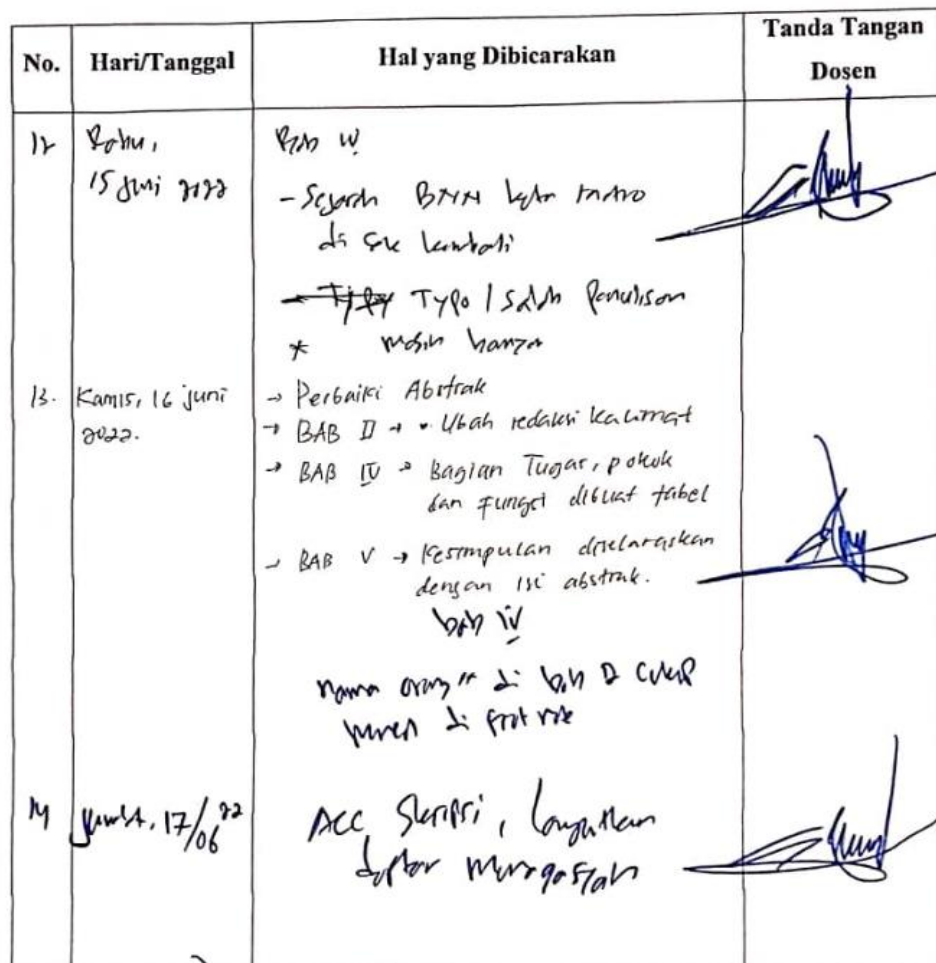 No.
Hari/Tanggal
Hal yang Dibicarakan
Tanda Tangan
Dosen
12
Rabu,
15 Juni 2022
Bab IV
- Sejarah BNN kota Metro
di cek kembali
Typo / salah penulisan
* masih banyak
13.
Kamis, 16 juni
2022.
→ Perbaiki Abstrak
→ BAB II → • Ubah redaksi kalimat
→ BAB IV → Bagian Tugas, pokok
dan fungsi dibuat tabel
→ BAB V → Kesimpulan diselaraskan
dengan isi abstrak.
bab IV
nama orang" di bab cukup
di foot note
14
Jum'at, 17/06 22
ACC Skripsi, lanjutkan
daftar Munaqasyah